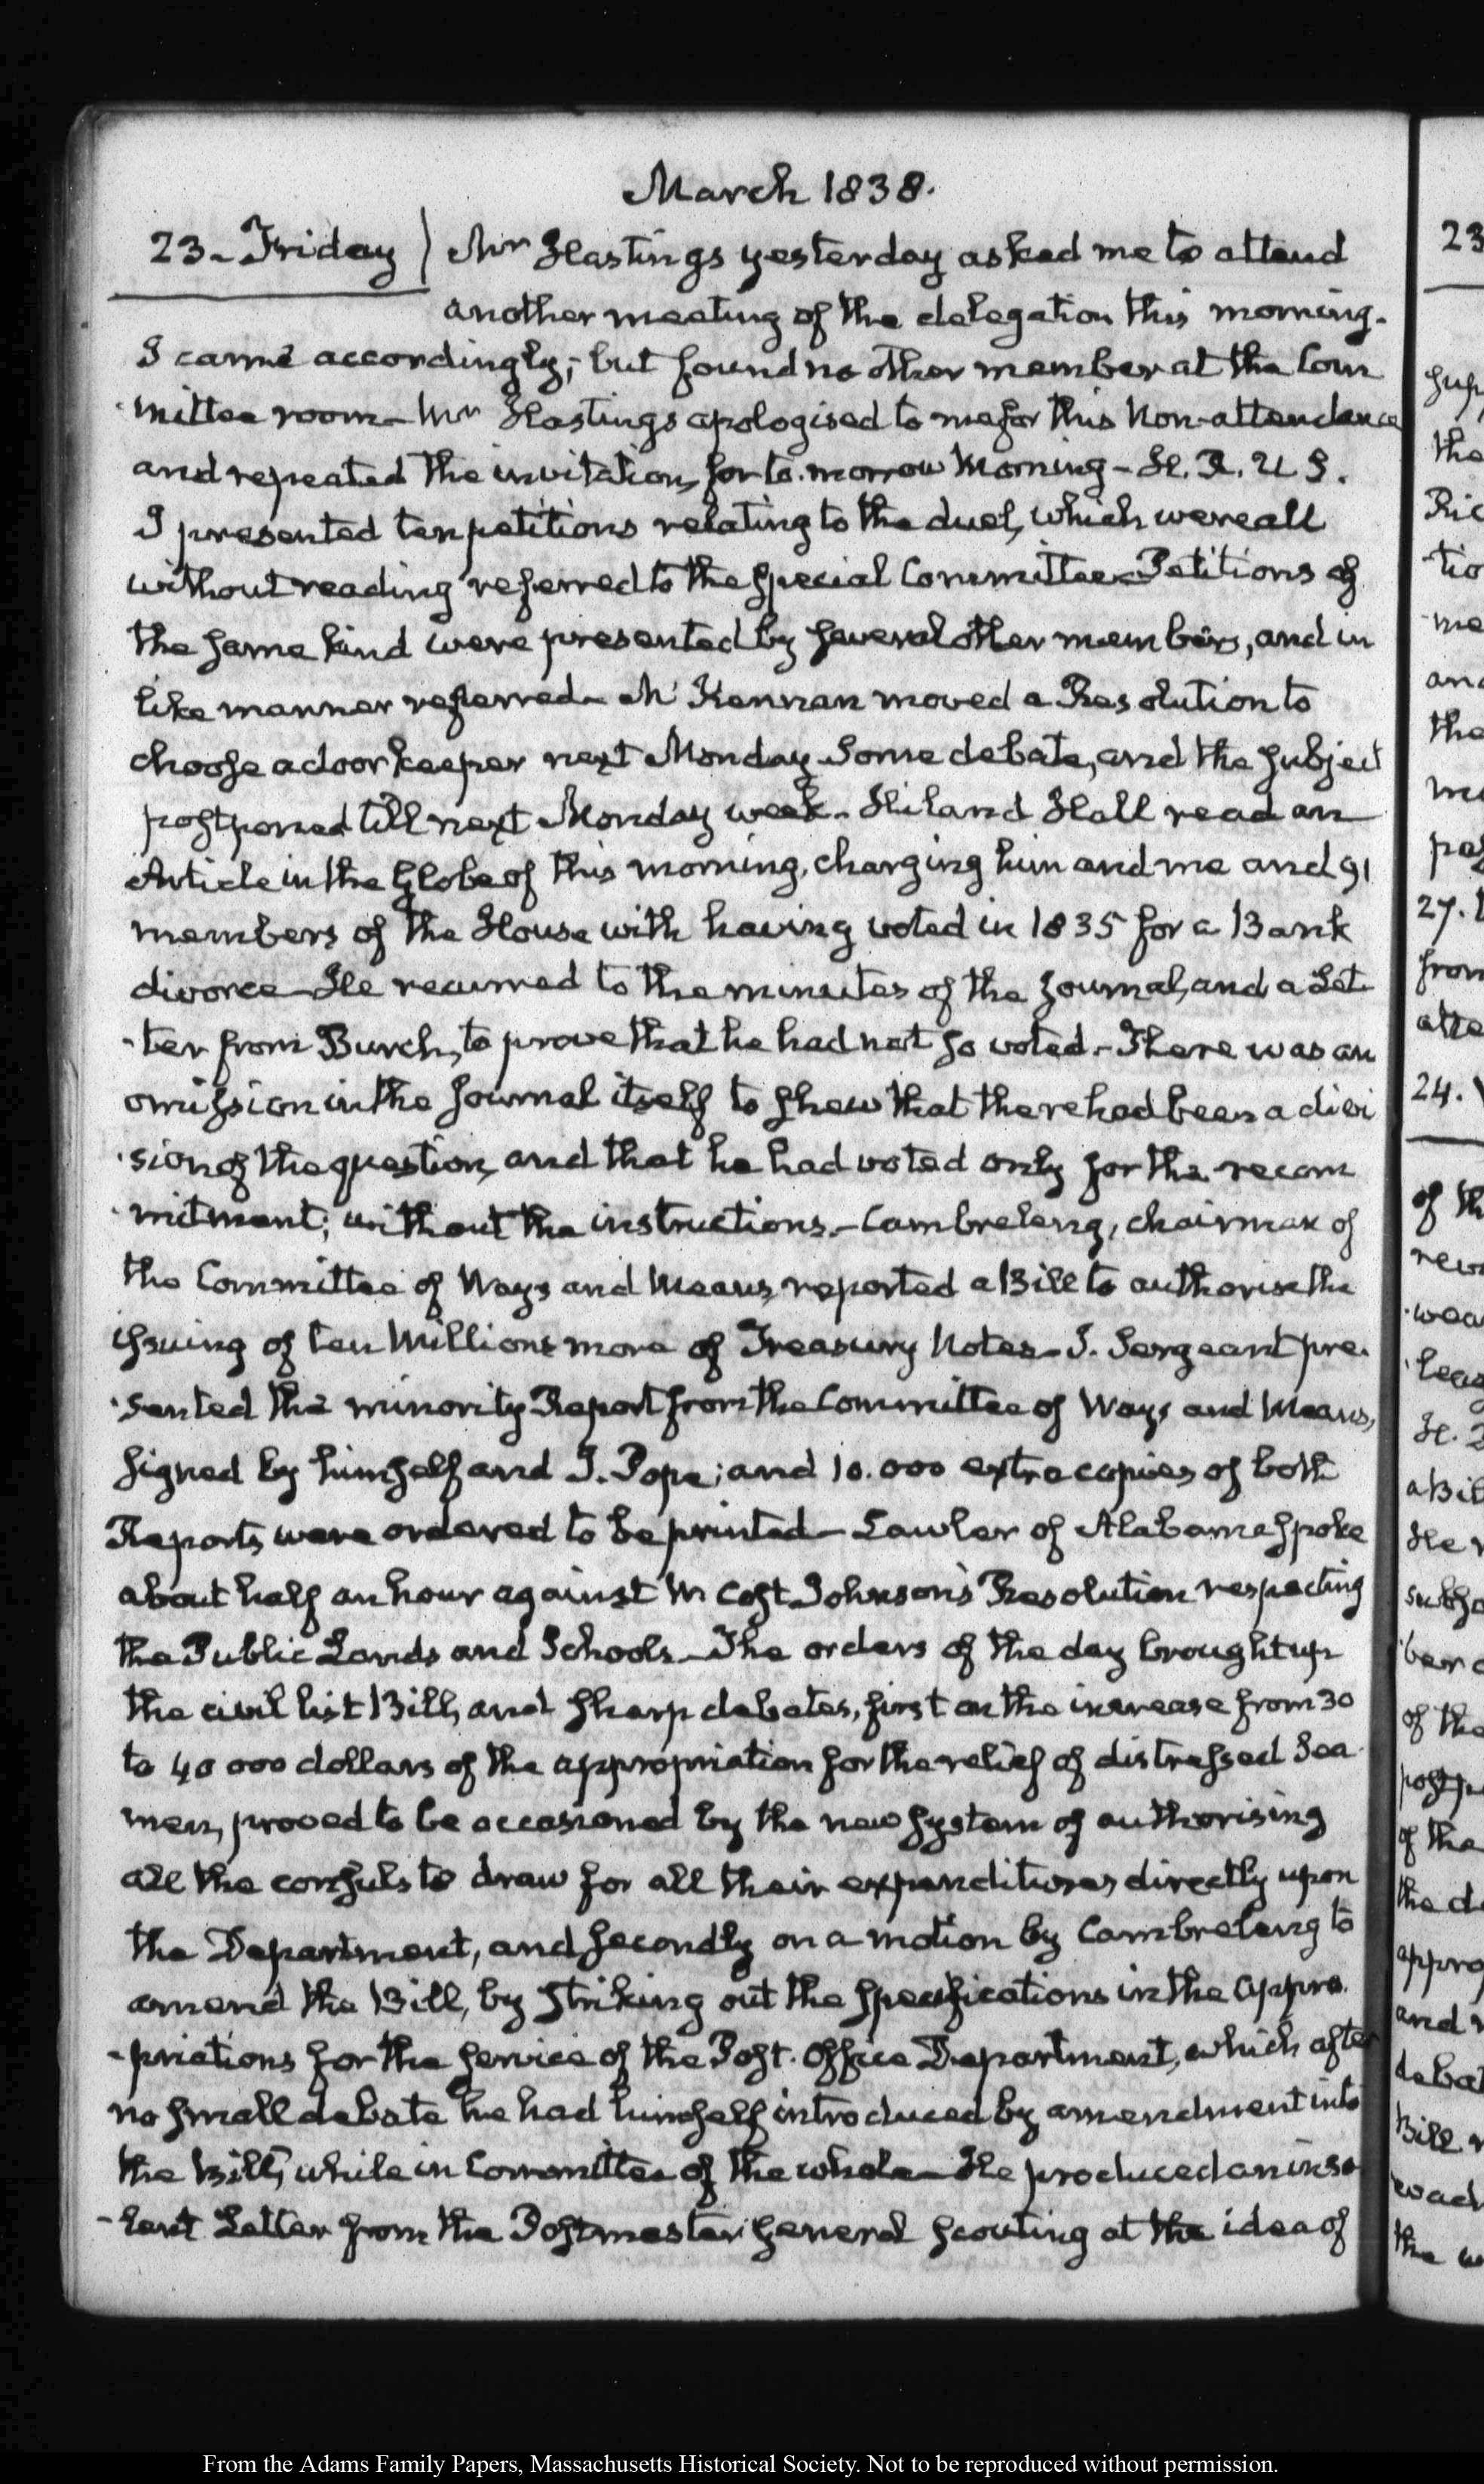 March 1838.
23. Friday) Mr Hastings yesterday asked me to attend
another meeting of the delegation this morning.
I came accordingly; but found no other member at the Com
mittee room - Mr Hastings apologised to me for this Non-attendance
and repeated the invitation, for to-morrow Morning - H. R. U S.
I presented ten petitions relating to the duel, which were all
without reading referred to the special Committee - Petitions of
the same kind were presented by several other members, and in
like manner referred - McKennan moved a Resolution to
choose a doorkeeper next Monday. Some debate, and the subject
postponed till next Monday week. - Hiland Hall read an
Article in the Globe of this morning, charging him and me and 91
members of the House with having voted in 1835 for a Bank
divorce - He recurred to the minutes of the journal, and a Let
-ter from Burch, to prove that he had not so voted. - There was an
omission in the journal itself to shew that there had been a divi
-sion of the question, and that he had voted only for the recom
-mitment; without the instructions. - Cambreleng, chairman of
the Committee of Ways and Means, reported a Bill to authorise the
issuing of ten Millions more of Treasury Notes - J. Sergeant pre-
-sented the minority Report from the Committee of Ways and Means,
signed by himself and J. Pope; and 10.000 extra copies of both
Reports were ordered to be printed - Lawler of Alabama spoke
about half an hour against W Cost Johnson's Resolution respecting
the Public Lands and Schools - The orders of the day brought up
the civil list Bill, and sharp debates, first on the increase from 30
to 40 000 dollars of the appropriation for the relief of distressed Sea-
men, proved to be occasioned by the new system of authorising
all the consuls to draw for all their expenditures directly upon
the Department, and secondly on a motion by Cambreleng to
amend the Bill, by striking out the specifications in the appro-
-priations for the service of the Post-Office Department, which after
no small debate he had himself introduced by amendment into
the Bill, while in Committee of the whole - He produced an inso
-lent Letter from the Postmaster General scouting at the idea of
23
the
Ric
tio
me
and
the
27.
from
atte
24.
of th
a Bil
He
of the
of the
the de
appro
and
debat
Bill
the w
From the Adams Family Papers, Massachusetts Historical Society. Not to be reproduced without permission.